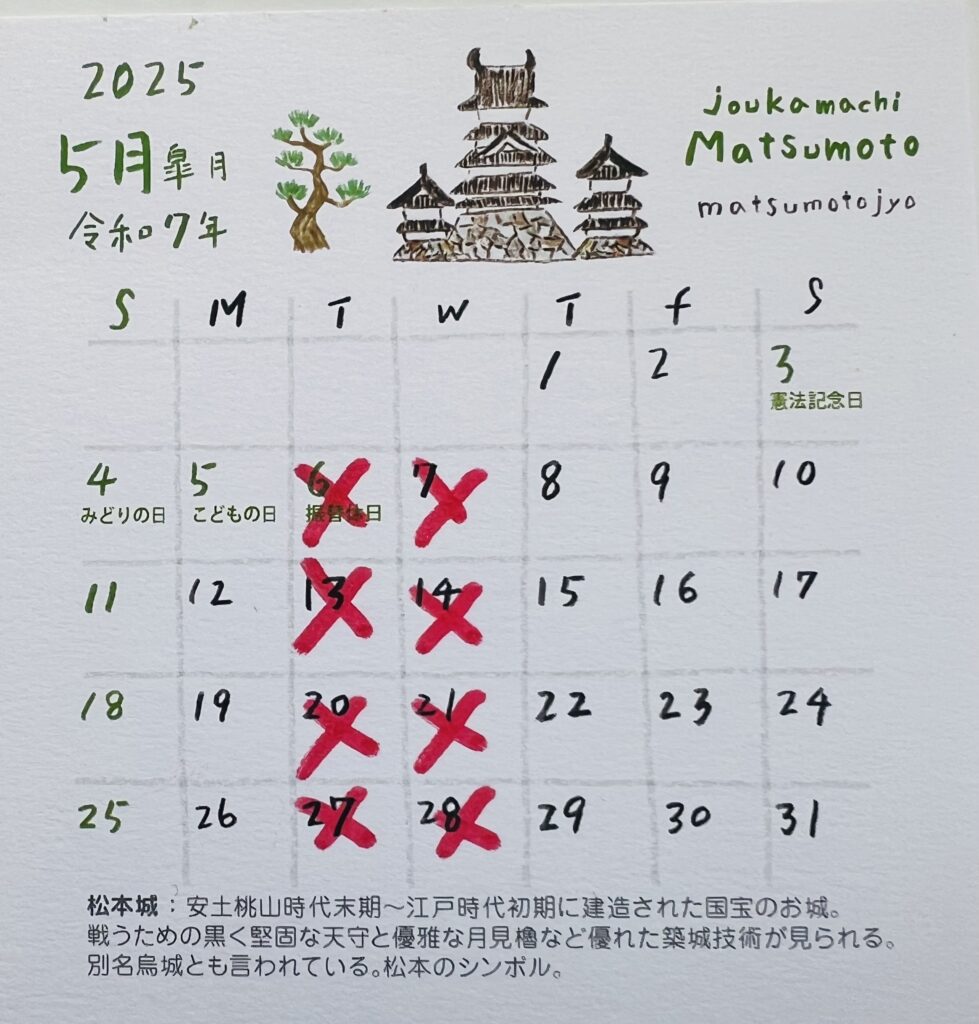 2025
5月 皐月
令和7年
joukamachi
Matsumoto
matsumotojyo
S M T W T f S
1 2 3
憲法記念日
4 5 6 7 8 9 10
みどりの日 こどもの日 振替休日
11 12 13 14 15 16 17
18 19 20 21 22 23 24
25 26 27 28 29 30 31
松本城：安土桃山時代末期～江戸時代初期に建造された国宝のお城。
戦うための黒く堅固な天守と優雅な月見櫓など優れた築城技術が見られる。
別名烏城とも言われている。松本のシンボル。